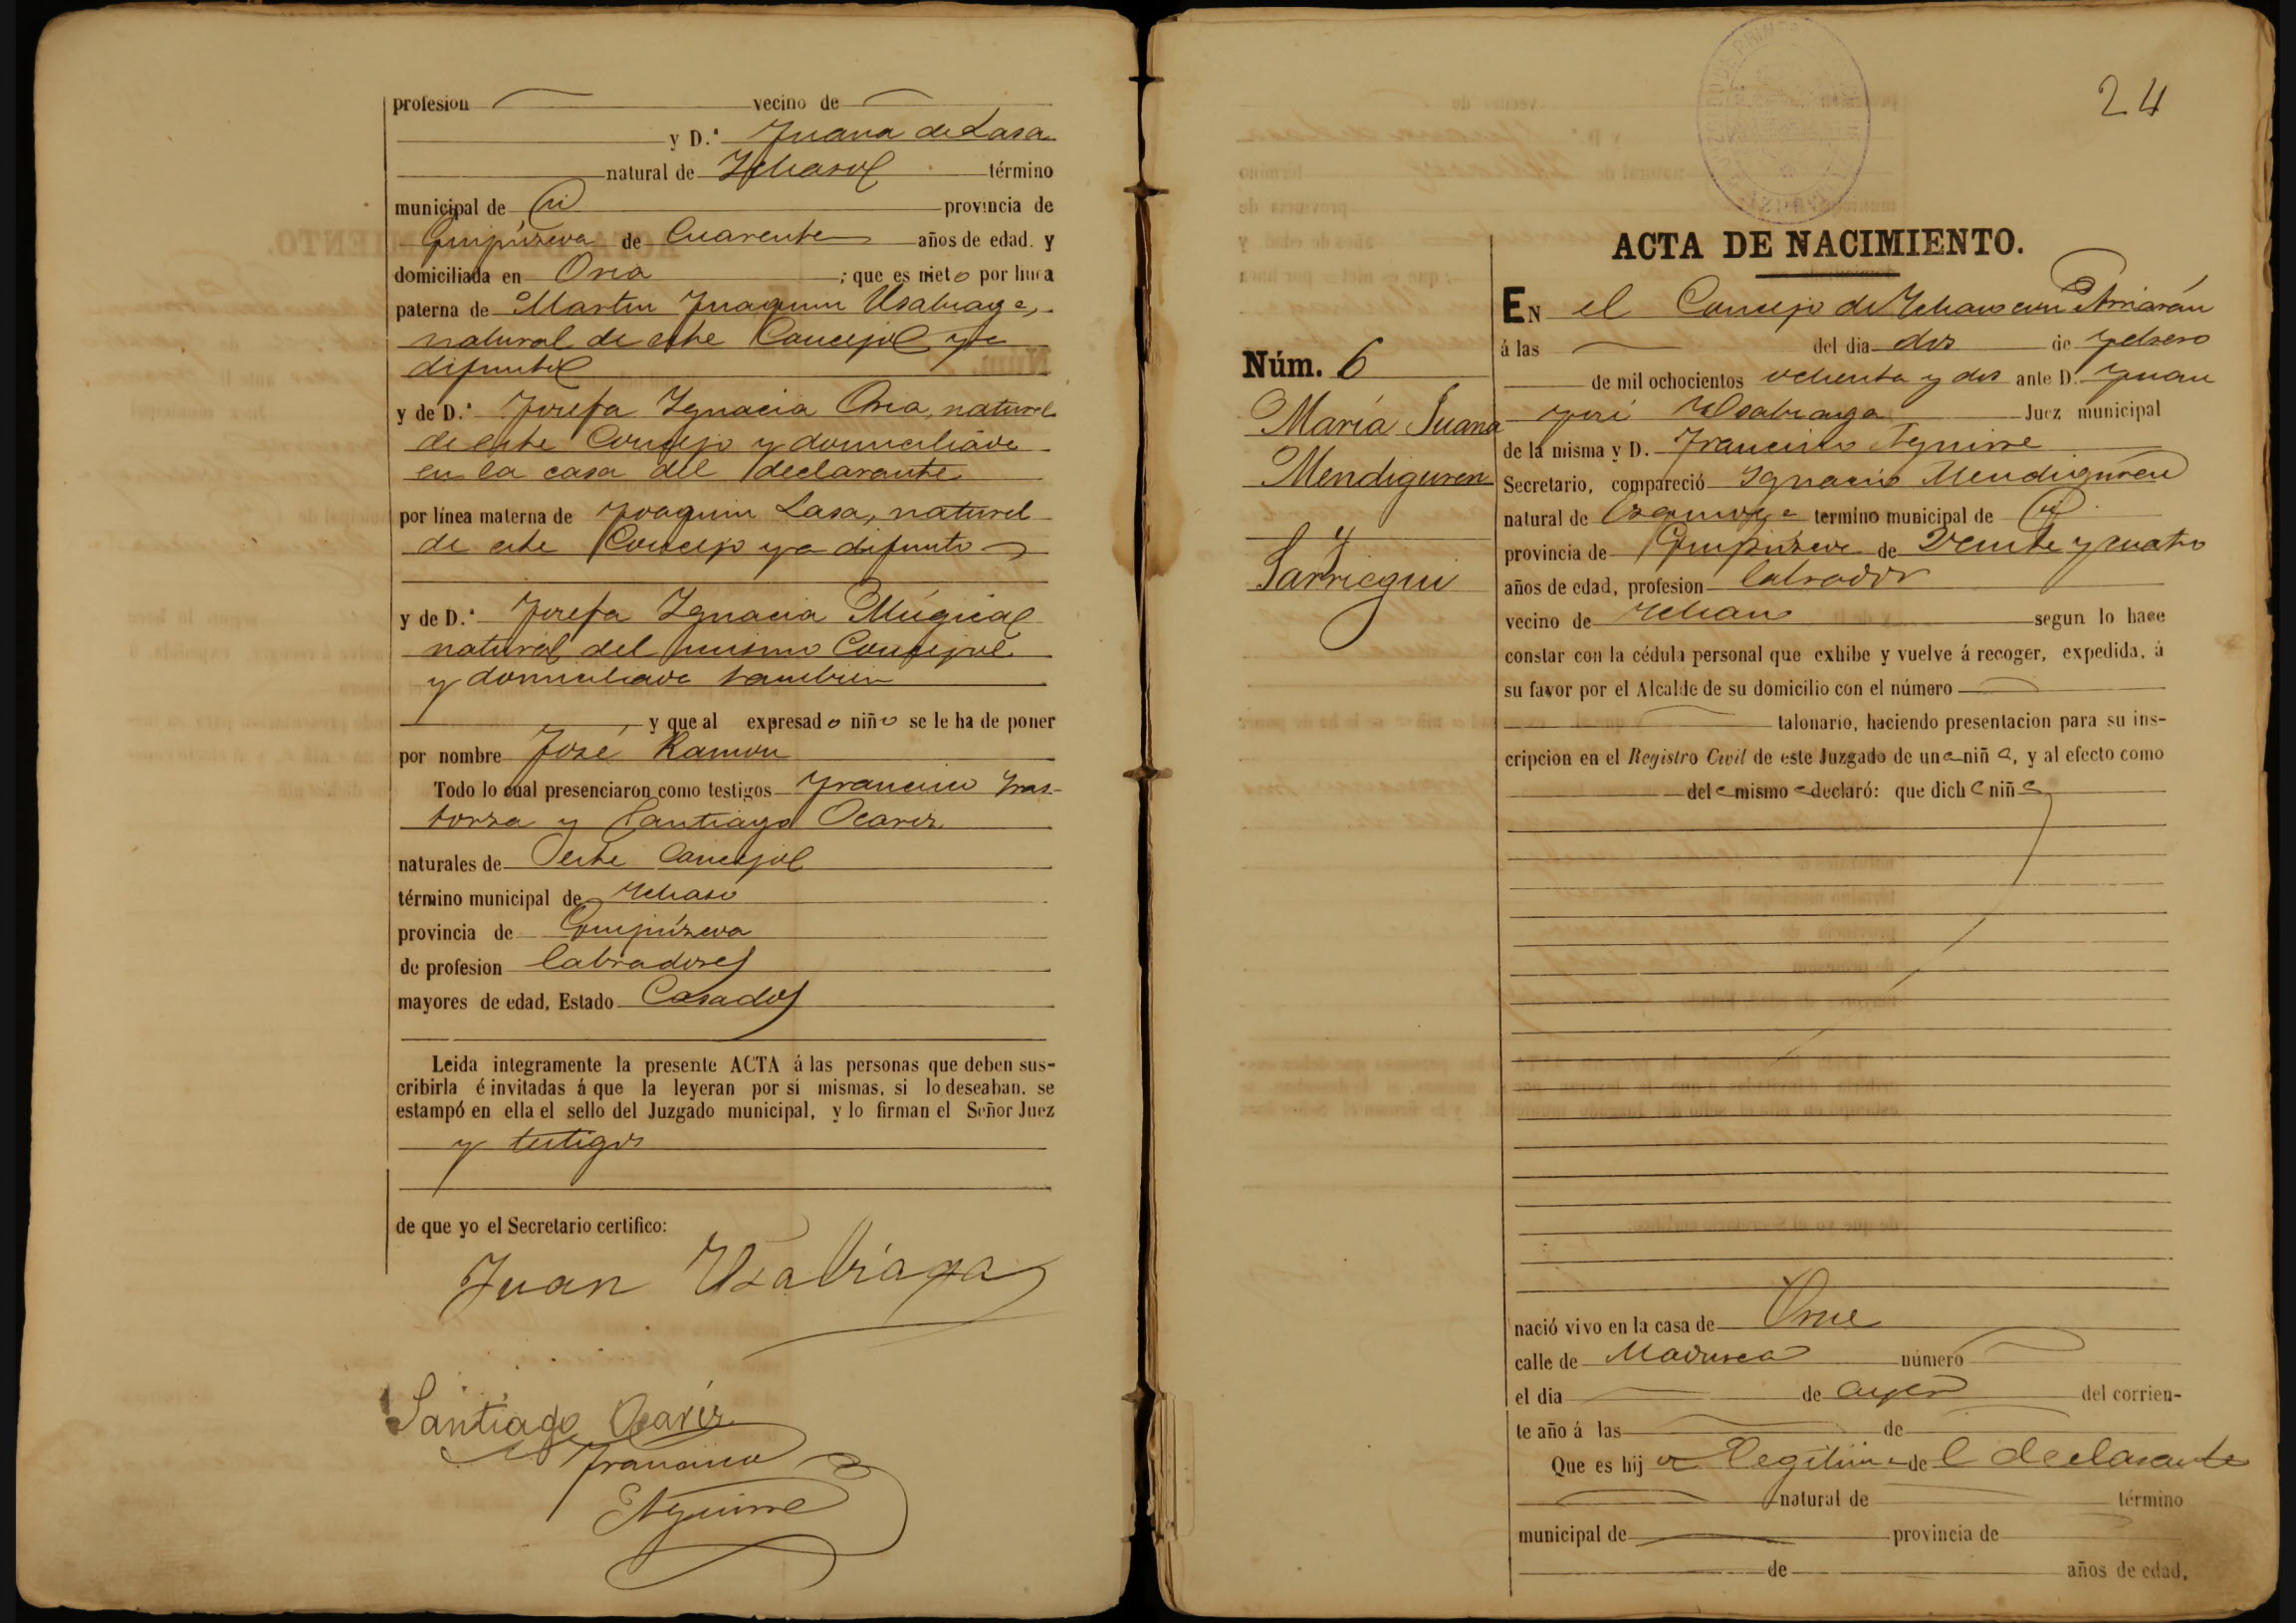 profesion vecino de
y D.ª Juana de Lasa
natural de Ichaso término
municipal de id provincia de
Guipúzcoa de Cuarenta años de edad. y
domiciliada en Oria ; que es nieto por línea
paterna de Martin Juaquin Usabiaga,
natural de este Concejo ya
difunto
y de D.ª Josefa Ignacia Oria, natural
de este Concejo y domiciliada
en la casa del declarante
por línea materna de Joaquin Lasa, natural
de este Concejo ya difunto
y de D.ª Josefa Ignacia Múgica
natural del mismo Concejo
y domiciliada tambien
y que al expresado niño se le ha de poner
por nombre José Ramon
Todo lo cual presenciaron como testigos Francisco
y Santiago Ocariz
naturales de este Concejo
término municipal de Ichaso
provincia de Guipúzcoa
de profesion labradores
mayores de edad, Estado Casados
Leida integramente la presente ACTA á las personas que deben sus-
cribirla é invitadas á que la leyeran por sí mismas, si lo deseaban, se
estampó en ella el sello del Juzgado municipal, y lo firman el Señor Juez
y testigos
de que yo el Secretario certifico:
Juan Usabiaga
Santiago Ocariz
Francisco
Aguirre
24
ACTA DE NACIMIENTO.
EN el Concejo de Ichaso con Arriarán
á las del dia dos de Febrero
de mil ochocientos ochenta y dos ante D. Juan
José Usabiaga Juez municipal
de la misma y D. Francisco Aguirre
Secretario, compareció Ignacio Mendiguren
natural de Ezquioga termino municipal de id
provincia de Guipúzcoa de Veinte y cuatro
años de edad, profesion labrador
vecino de Ichaso segun lo hace
constar con la cédula personal que exhibe y vuelve á recoger, expedida, á
su favor por el Alcalde de su domicilio con el número
talonario, haciendo presentacion para su ins-
cripcion en el Registro Civil de este Juzgado de una niña, y al efecto como
del mismo declaró: que dicha niña
Núm. 6
María Juana
Mendiguren
y
Sarriegui
nació vivo en la casa de
calle de número
el dia de ayer del corrien-
te año á las de
Que es hija legitima de l declarante
natural de término
municipal de provincia de
de años de edad,